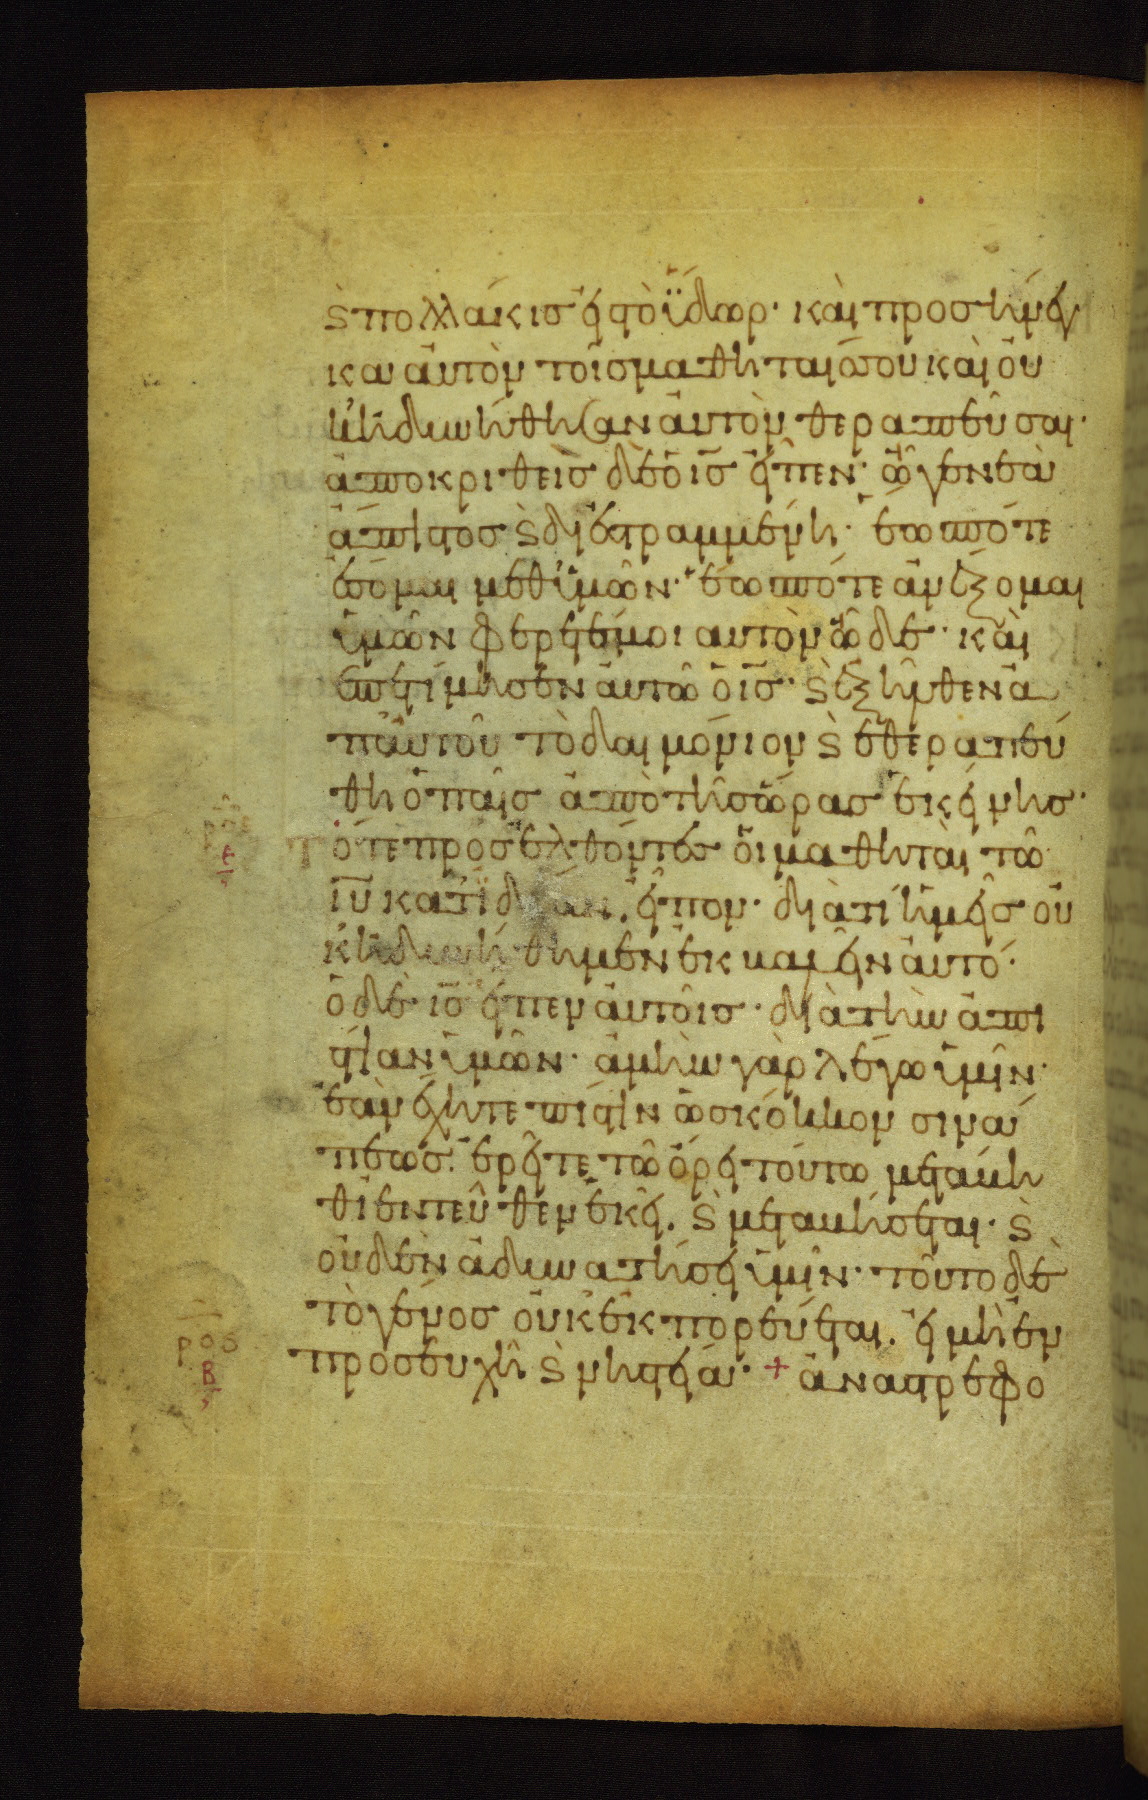 ϗ πολλάκις εἰς τὸ ὕδωρ· καὶ προσήνεγ
κα αὐτὸν τοῖς μαθηταῖς σου καὶ οὐ
κ ἠδυνήθησαν αὐτὸν θεραπεῦσαι·
ἀποκριθεὶς δὲ ὁ ις εἶπεν· ὦ γενεὰ
ἄπιστος ϗ διεστραμμένη· ἕως πότε
ἔσομαι μεθ ὑμῶν· ἕως πότε ἀνέξομαι
ὑμῶν φέρετέ μοι αὐτὸν ὧδε· καὶ
ἐπετίμησεν αὐτῶ ὁ ις· ϗ ἐξῆλθεν ἀ
π αὐτοῦ τὸ δαιμόνιον ϗ ἐθεραπεύ
θη ὁ παῖς ἀπὸ τῆς ὥρας ἐκείνης·
Τότε προσελθόντες οἱ μαθηταὶ τῶ
ιυ κατ ἰδίαν. εἶπον· διατί ἡμεῖς οὐ
κ ἠδυνήθημεν ἐκβαλεῖν αὐτό·
ὁ δὲ ις εἶπεν αὐτοῖς· διὰ τὴν ἀπι
στίαν ὑμῶν· ἀμὴν γὰρ λέγω ὑμῖν·
ἐὰν ἔχητε πίστιν ὡς κόκκον σινά
πεως. ἐρεῖτε τῶ ὄρει τούτω μετάβη
θι ἐντεῦθεν ἐκεῖ. ϗ μεταβήσεται· ϗ
οὐδὲν ἀδυνατήσει ὑμῖν· τοῦτο δὲ
τὸ γένος οὐκ ἐκπορεύεται. εἰ μὴ ἐν
προσευχῆ ϗ νηστεία· + ἀναστρεφο
ροε
ροδ
β